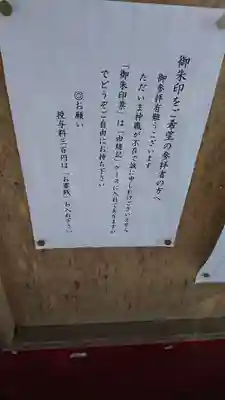 御朱印をご希望の参拝者の方へ
御参拝有難うございます
ただいま神職が不在で誠に申し訳ございませんが
「御朱印紙」は「由緒記」ケースに入れてありますが
でどうぞご自由にお持ち下さい
◎お願い
授与料三百円は「お賽銭」お入れ下さい